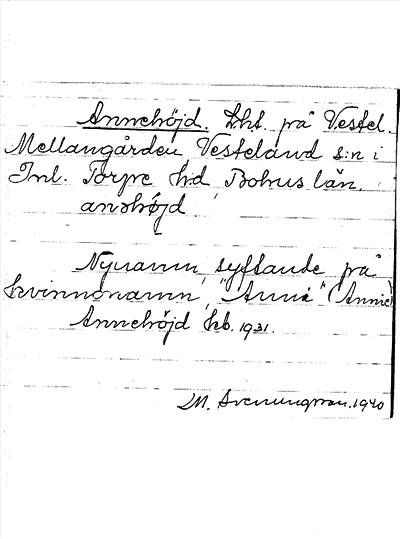 Annehöjd. Lht. på Vestel.
Mellangården Vesteland s:n i
Inl. Torpe hd Bohus län.
anəhøjd
Nynamn, syftande på
kvinnonamn, "Anna" (Annie)
Annehöjd kb. 1931.
M. Svenungsson. 1940